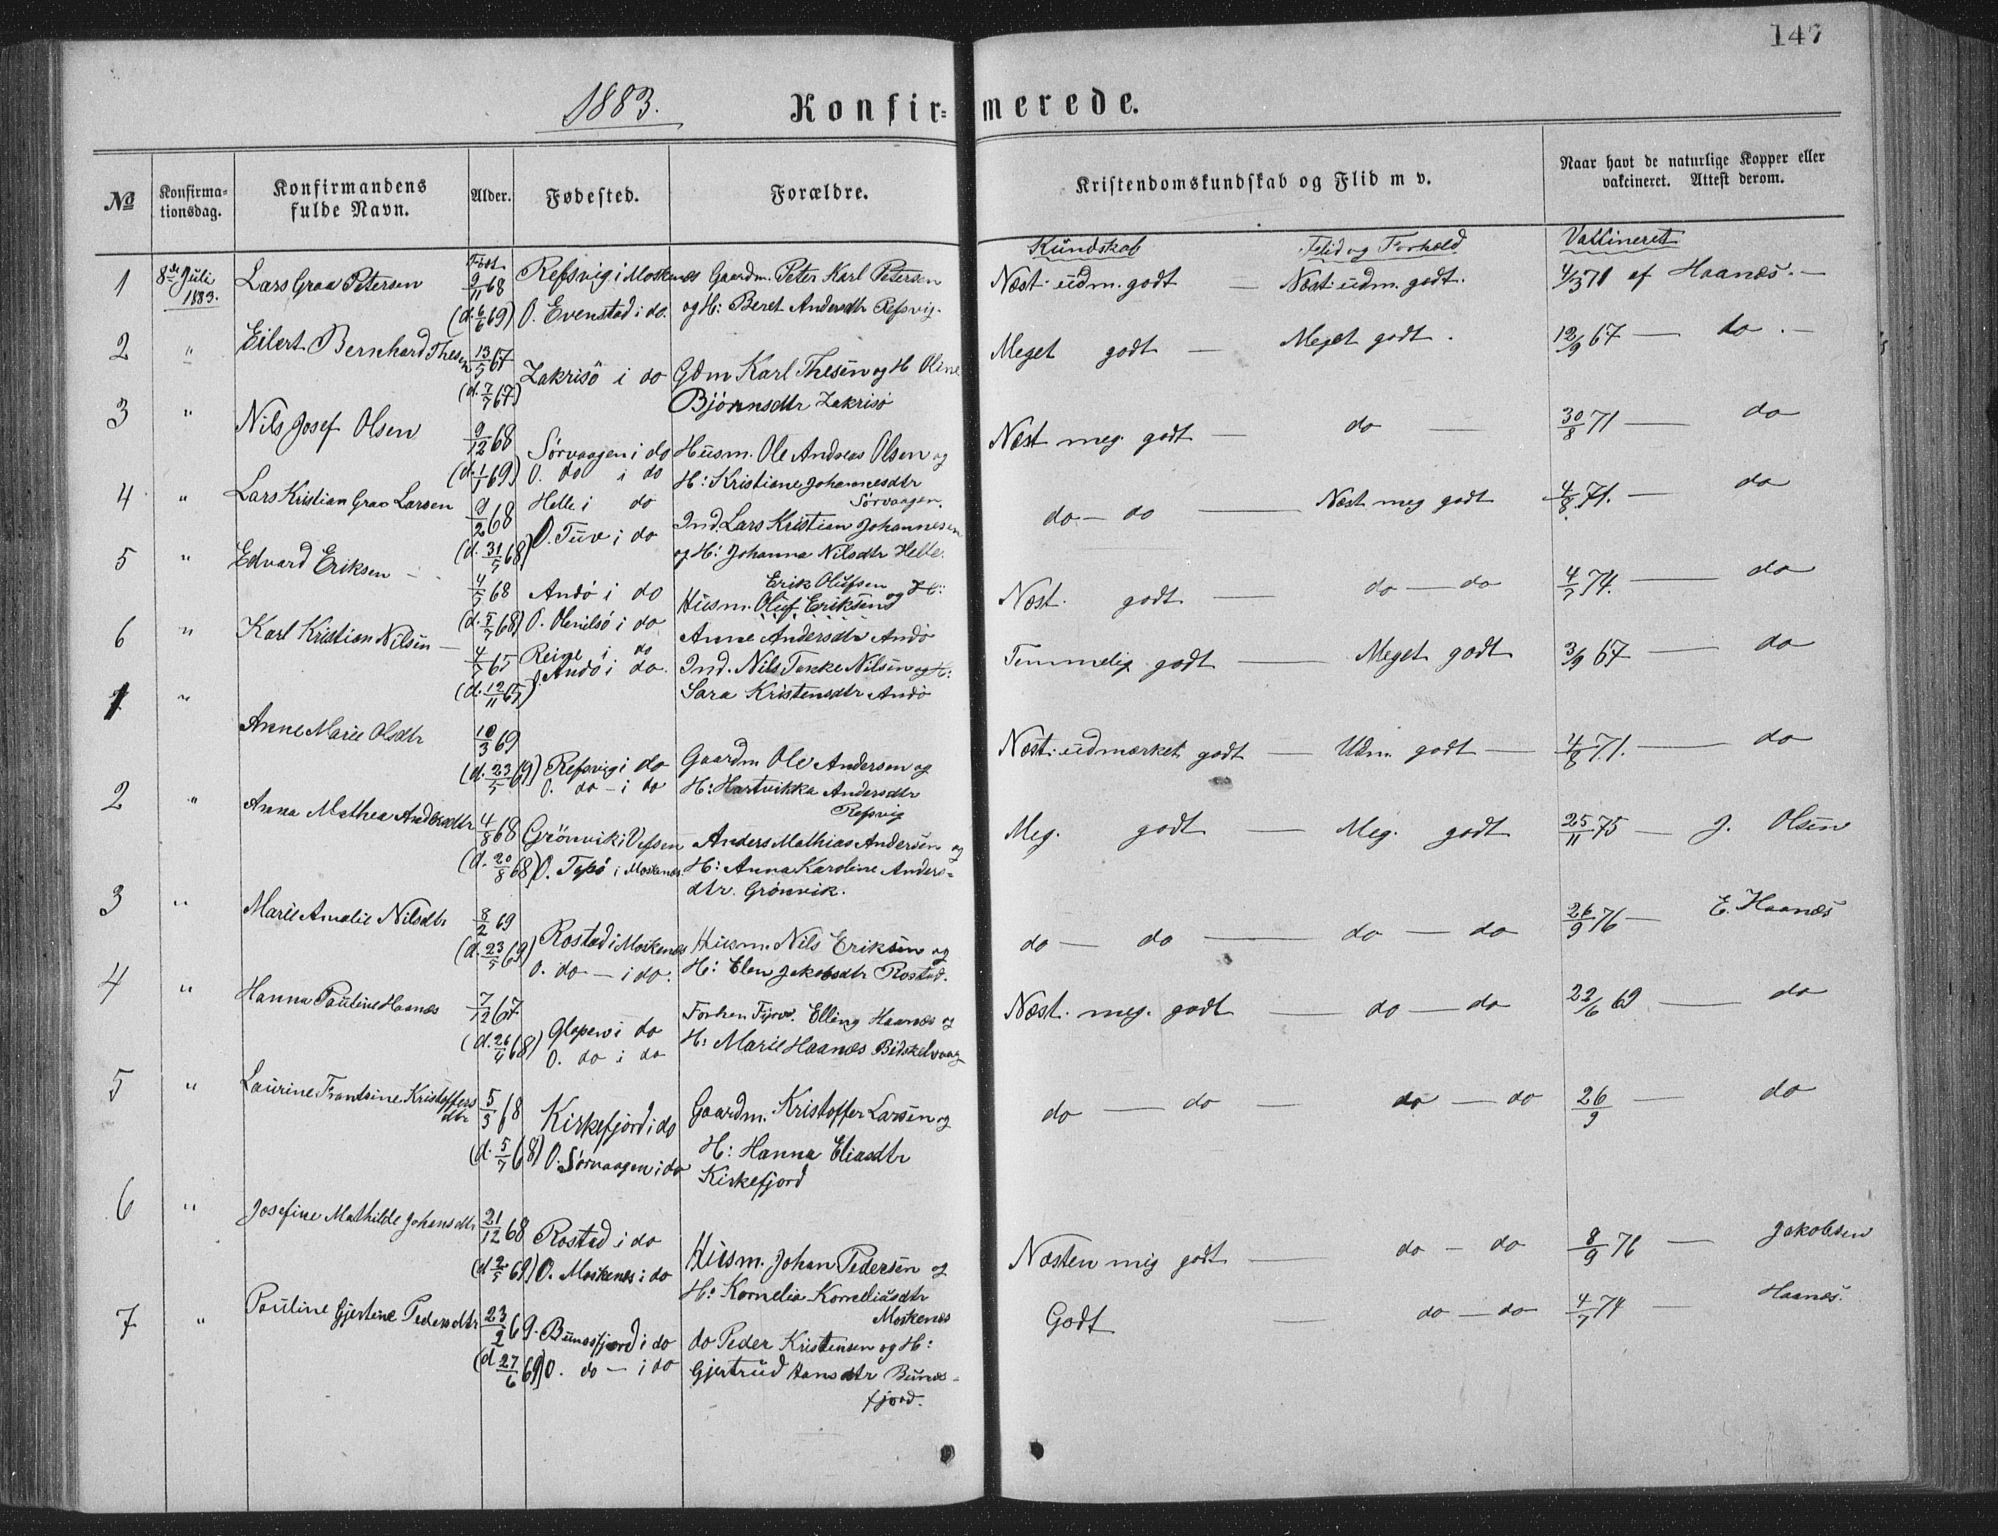 147
1883. Konfir=merede.
№
Konfirma=tionsdag.
Konfirmandens fulde Navn.
Alder.
Fødested.
Forældre.
Kristendomskundskab og Flid m v.
Naar havt de naturlige Kopper eller vakcineret. Attest derom.
Født
Kundskab
Flid og Forhold
Vakcineret
1 8de Juli 1883. Lars Graa Petersen 9/11 68 Refsvig i Moskenæs Gaardm. Peter Karl Petersen Næst: udm. godt — Næst: udm. godt. 4/3 71 af Haanæs. —
(d. 6/6 69) O. Evenstad i do. og H: Beret Andersdtr Refsvig.
2 " Eilert Bernhard Thesen 13/5 67 Zakrisö i do Gdm Karl Thesen og H Oline Meget godt — Meget godt. 12/9 67 — do. —
(d. 7/7 67) Bjørnsdtr Zakrisö
3 " Nils Josef Olsen 9/12 68 Sörvaagen i do Husm. Ole Andreas Olsen og Næst meg. godt — do — 30/8 71 — do
(d. 1/1 69) O. do i do H: Kristiane Johannesdtr Sörvaagen.
4 " Lars Kristian Graa Larsen 9/2 68 Helle i do Ind. Lars Kristian Johannesen do — do — Næst meg godt 4/8 71. — do
(d. 31/5 68) O. Tuv i do og H: Johanna Nilsdtr Helle.
5 " Edvard Eriksen — 4/5 68 Andö i do Husm. Oluf Eriksen Erik Olufsen og H: Næst. godt — do — do 4/7 74. — do
(d. 5/7 68) O. Olenilsö i do Anne Andersdtr Andö
6 " Karl Kristian Nilsen — 4/7 65 Reine i do Ind. Nils Tekke Nilsen og H: Temmelig godt — Meget godt 3/9 67 — do
(d. 12/11 65) O. Andö i do. Sara Kristensdtr Andö
1 " Anne Marie Olsdtr 10/3 69 Refsvig i do Gaardm Ole Andersen og Næst: udmærket godt — Udm. godt — 4/8 71. — do
(d. 23/5 69) O. do — i do H: Hartvikka Andersdtr Refsvig
2 " Anna Mathea Andersdtr 4/8 68 Grönvik i Vefsen Anders Mathias Andersen og Meg. godt — Meg. godt 25/11 75 — J. Olsen
(d. 20/8 68) O. Topö i Moskenæs. H: Anna Karoline Anders=dtr. Grönvik.
3 " Marie Amalie Nilsdtr 8/2 69 Rostad i Moskenæs Husm. Nils Eriksen og do — do — do — do 26/9 76 — E. Haanæs
(d. 23/5 69) O. do — i do. H: Elen Jakobsdtr Rostad.
4 " Hanna Pauline Haanæs 7/12 67 Glapen i do Forhen Fyrv. Elling Haanæs og Næst. meg. godt — do — do 22/6 69 — do
(d. 26/4 68) O. do i do H: Marie Haanæs Bedskelvaag
5 " Laurine Frantsine Kristoffersdtr 5/3 68 Kirkefjord i do Gaardm. Kristoffer Larsen og do — do — do — do 26/9 — do
(d. 5/7 68) O. Sörvaagen i do H: Hanna Eliasdtr Kirkefjord
6 " Josefine Mathilde Johansdtr 21/12 68 Rostad i do Husm. Johan Pedersen og Næsten mig godt — do — do 8/9 76 — Jakobsen
(d 2/5 69) O. Moskenæs i do H: Kornelia Korneliusdtr Moskenæs
7 " Pauline Gjertine Pedersdtr 23/2 69. Bunesfjord i do do Peder Kristensen og H: Godt — do — do 4/7 74 — Haanæs.
(d 27/6 69) O. do — i do Gjertrud Hansdtr Bunes=fjord.